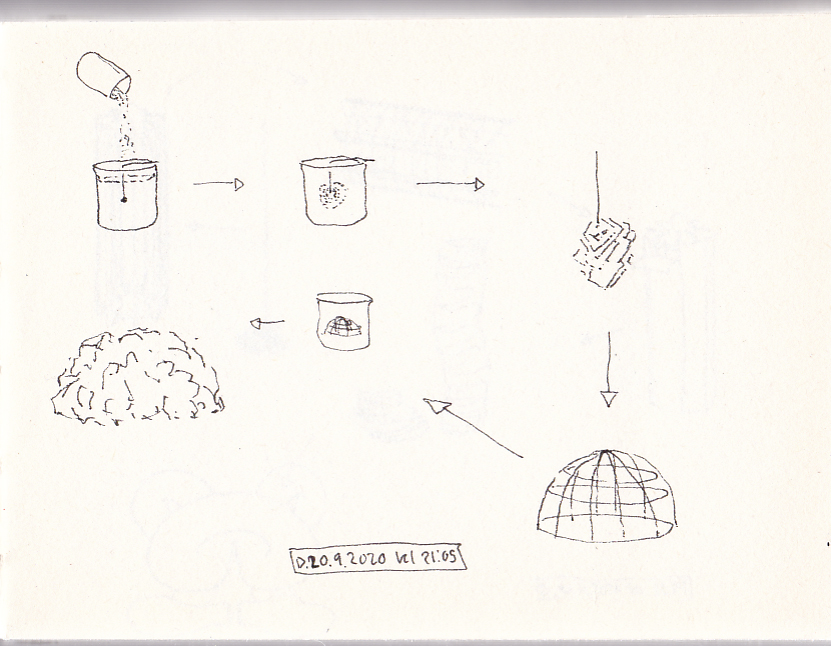 D.20.9.2020 kl 21:05